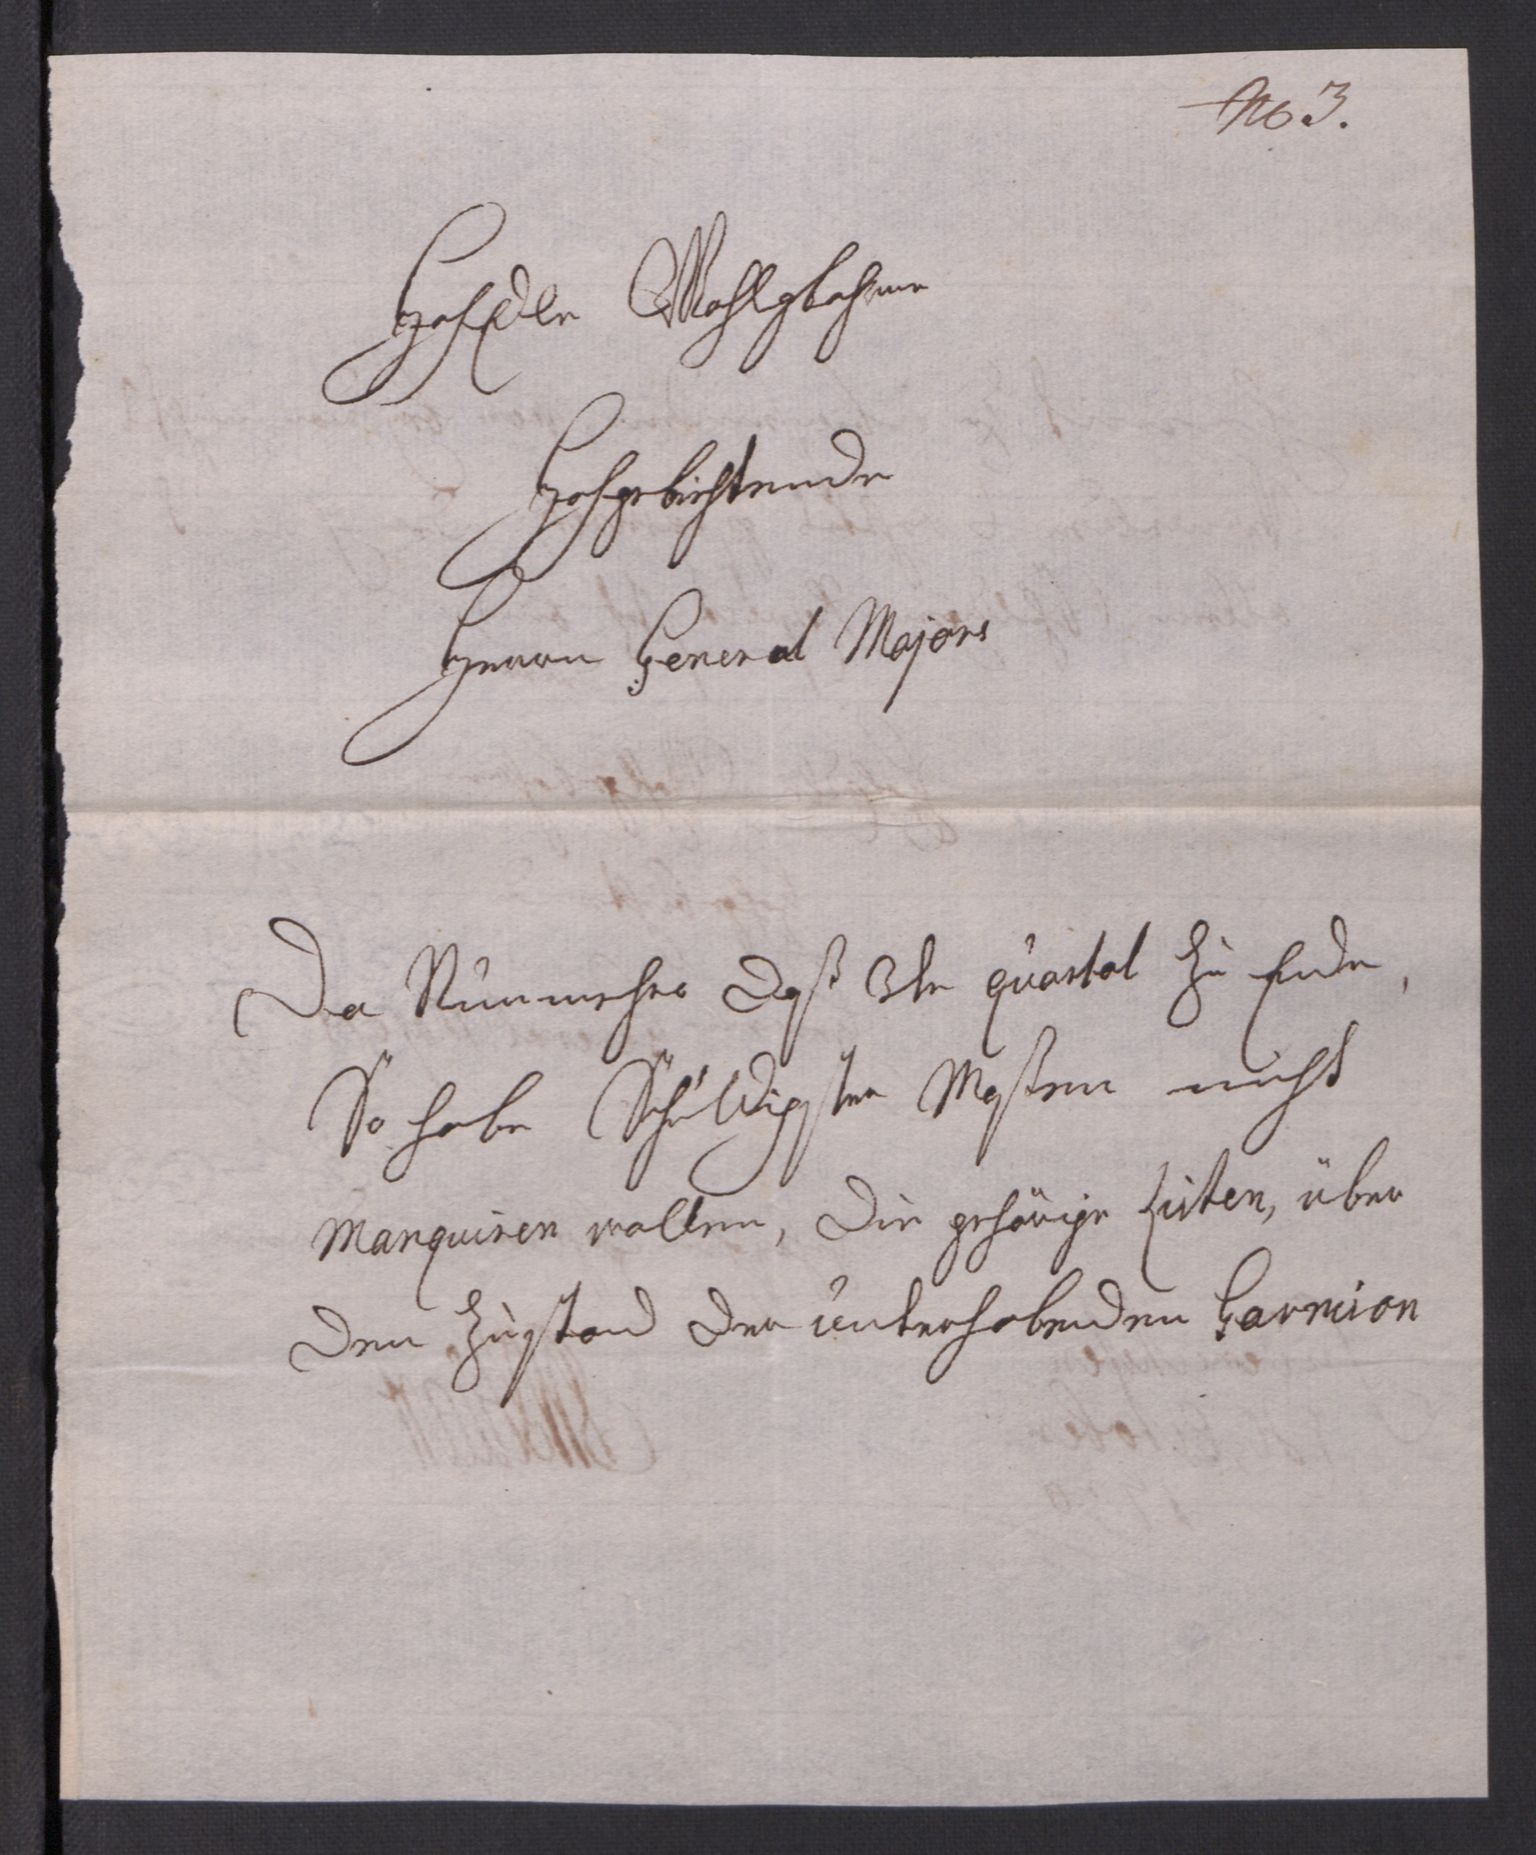 No 3.
HohEdle Wohlgbohrne
Hohgebiehtende
Herrn General Majors
Da Nunmehro dass 3te quartal zu Ende,
So habe Schuldigster Massen nicht
Manquiren wollen, die gehörige Listen, über
den Zustand der unterhabenden Garnison